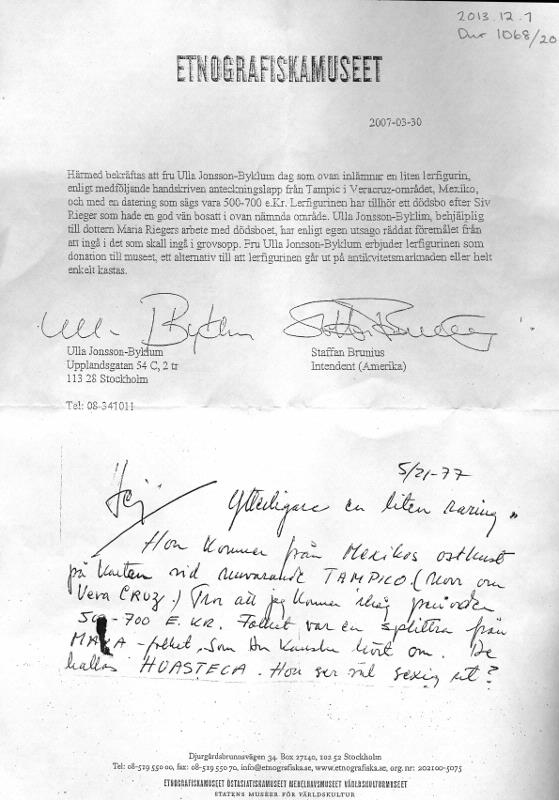 2013.12.1
Dnr 1068/20
ETNOGRAFISKAMUSEET
2007-03-30
Härmed bekräftas att fru Ulla Jonsson-Byklum dag som ovan inlämnar en liten lerfigurin,
enligt medföljande handskriven anteckningslapp från Tampic i Veracruz-området, Mexiko,
och med en datering som sägs vara 500-700 e.Kr. Lerfigurinen har tillhör ett dödsbo efter Siv
Rieger som hade en god vän bosatt i ovan nämnda område. Ulla Jonsson-Byklim, behjälplig
till dottern Maria Riegers arbete med dödsboet, har enligt egen utsago räddat föremålet från
att ingå i det som skall ingå i grovsopp. Fru Ulla Jonsson-Byklum erbjuder lerfigurinen som
donation till museet, ett alternativ till att lerfigurinen går ut på antikvitetsmarknaden eller helt
enkelt kastas.
Ulla Jonsson-Byklum
Upplandsgatan 54 C, 2 tr
113 28 Stockholm
Tel: 08-341011
Staffan Brunius
Intendent (Amerika)
5/21-77
Hej Ytterligare en liten raring"
Hon kommer från Mexikos ostkust
på kusten vid nuvarande TAMPICO (norr om
Vera CRUZ.) Tror att jag kommer ihåg perioden
500-700 E.KR. Folket var en splittra från
MAYA-folket, som du kanske hört om. De
kallas HUASTECA. Hon ser väl sexig ut?
Djurgårdsbrunnsvägen 34. Box 27140, 102 52 Stockholm
Tel: 08-519 550 00, fax: 08-519 550 70, info@etnografiska.se, www.etnografiska.se, org. nr: 202100-5075
ETNOGRAFISKA MUSEET ÖSTASIATISKA MUSEET MEDELHAVSMUSEET VÄRLDSKULTURMUSEET
STATENS MUSEER FÖR VÄRLDSKULTUR